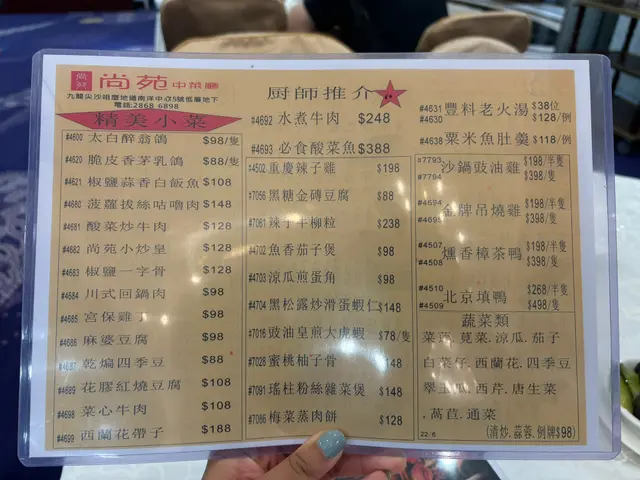 尚苑
尚苑中菜廳
九龍尖沙咀麼地道南洋中心5號低層地下
電話:2868 6898
精美小菜
#4600 太白醉翁鴿 $98/隻
#4620 脆皮香茅乳鴿 $88/隻
#4621 椒鹽蒜香白飯魚 $108
#4680 菠蘿拔絲咕嚕肉 $148
#4681 酸菜炒牛肉 $128
#4682 尚苑小炒皇 $128
#4683 椒鹽一字骨 $128
#4684 川式回鍋肉 $98
#4685 宮保雞丁 $98
#4686 麻婆豆腐 $98
#4687 乾煸四季豆 $88
#4689 花膠紅燒豆腐 $108
#4698 菜心牛肉 $108
#4699 西蘭花帶子 $188
厨師推介
#4692 水煮牛肉 $248
#4693 必食酸菜魚 $388
#4502 重慶辣子雞 $196
#7056 黑糖金磚豆腐 $88
#7081 辣子牛柳粒 $238
#4702 魚香茄子煲 $98
#4703 涼瓜煎蛋角 $98
#4704 黑松露炒滑蛋蝦仁 $148
#7016 豉油皇煎大虎蝦 $78/隻
#7028 蜜桃柚子骨 $148
#7091 瑤柱粉絲雜菜煲 $148
#7086 梅菜蒸肉餅 $128
#4631 豐料老火湯 $38位
#4630 $128/例
#4638 粟米魚肚羹 $118/例
#7793 沙鍋豉油雞 $198/半隻
#7794 $398/隻
#4694 金牌吊燒雞 $198/半隻
#4695 $398/隻
#4507 燻香樟茶鴨 $198/半隻
#4508 $398/隻
#4510 北京填鴨 $268/半隻
#4509 $498/隻
蔬菜類
菜芯.莧菜.涼瓜.茄子
白菜仔.西蘭花.四季豆
翠玉瓜.西芹.唐生菜
.萵苣.通菜
22:6 (清炒,蒜蓉,例牌$98)